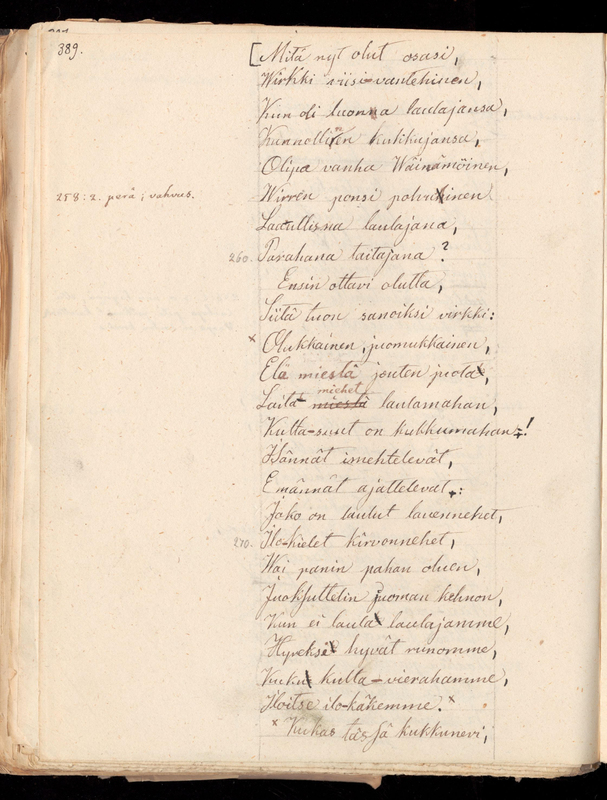 389.
[Mitä nyt olut osasi,
Wirkki viisi-vantehinen,
Kun oli luonna laulajansa,
Kunnollisen kukkujansa,
Olipa vanha Wäinämöinen,
258: 2. perä; vahvus.
Wirren ponsi polvuinen
Laadullisna laulajana,
260. Parahana taitajana?
Ensin ottavi olutta,
Siitä tuon sanoiksi virkki:
× Olukkainen, juomukkainen,
Elä miestä jouten juota,
miehet
Laita miestä laulamahan,
Kulta-suut on kukkumahan!
Isännät imehtelevät,
Emännät ajattelevat:
Joko on laulut lauennehet,
270. Ilo-kielet kirvonnehet,
Wai panin pahan oluen,
Juoksuttelin juoman kehnon,
Kun ei laula laulajamme,
Hyreksi hyvät runomme,
Kuku kulta-vierahamme,
Iloitse ilo-käkemme. ×
× Kukas tässä kukkunevi,